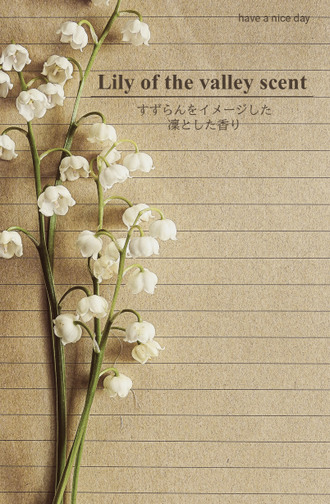 have a nice day
Lily of the valley scent
すずらんをイメージした
凛とした香り